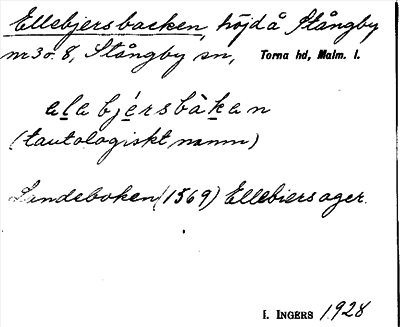 Ellebjersbacken, höjd å Stångby
nr 3 o. 8, Stångby sn, Torna hd, Malm. l.
ęlębjérsbàkęn
(tautologiskt namn)
Landeboken (1569) Ellebiersager.
I. INGERS 1928